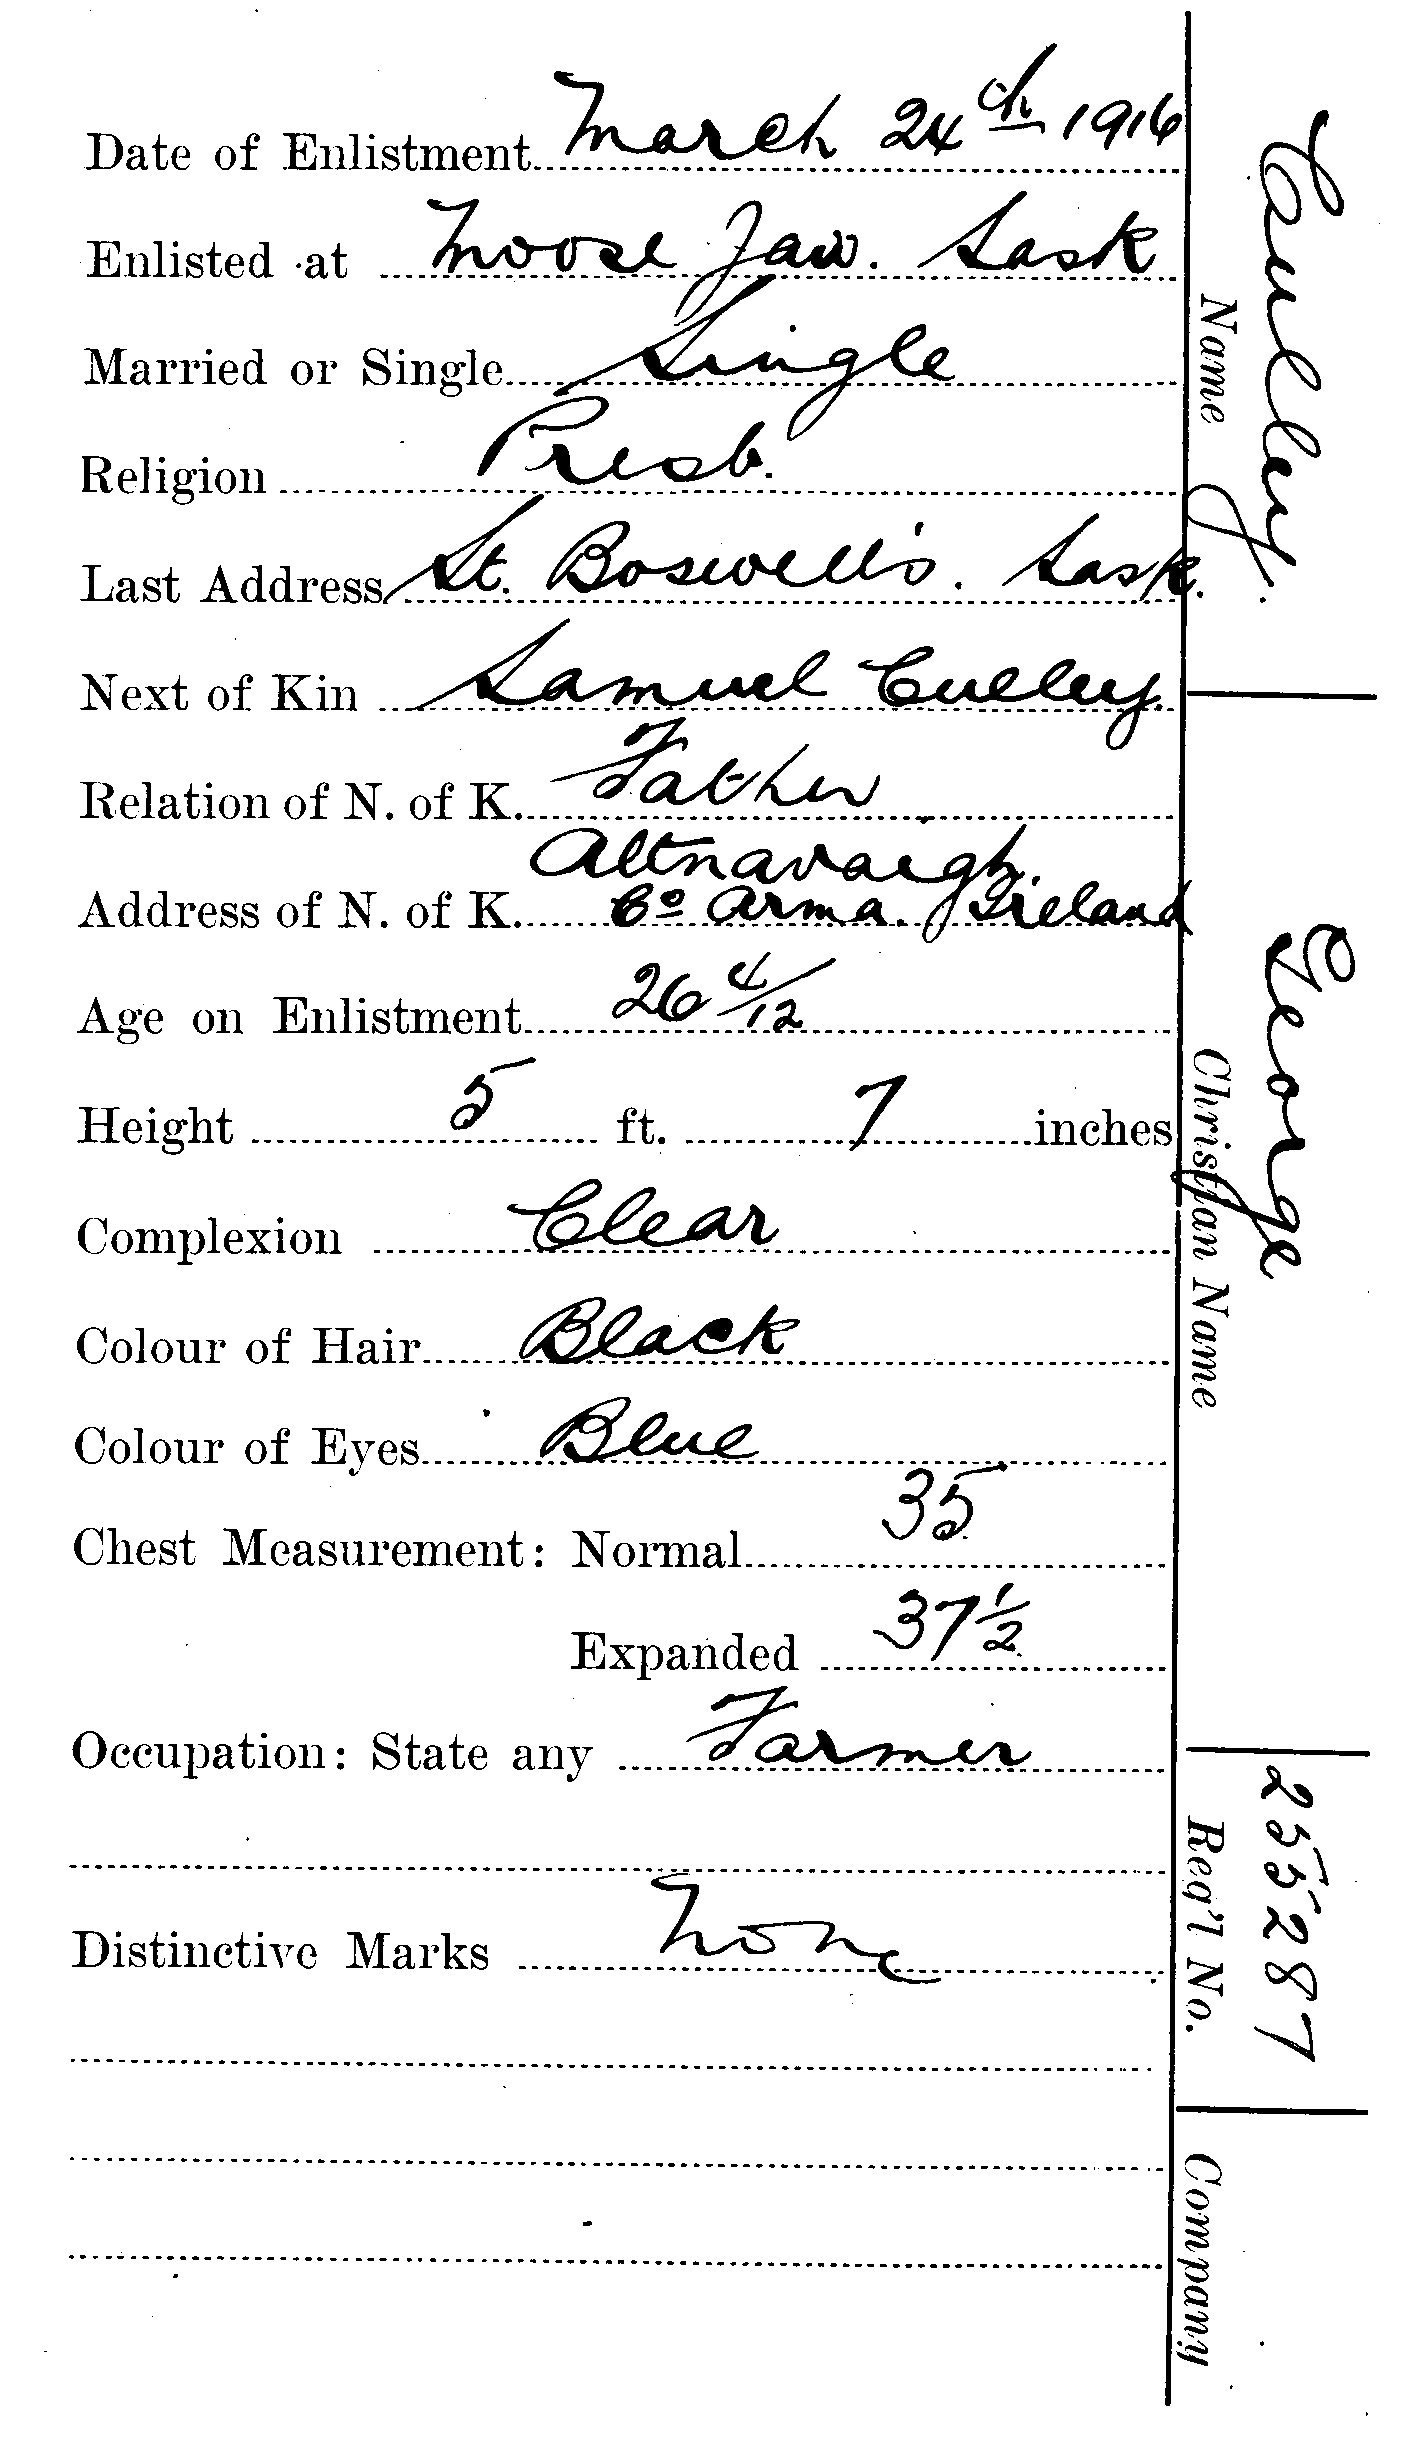 Date of Enlistment March 24th 1916
Enlisted at Moose Jaw. Sask
Married or Single Single
Religion Presb.
Last Address St. Boswell's. Sask.
Next of Kin Samuel Culley.
Relation of N. of K. Father
Altnavaigh.
Address of N. of K. Co Arma. Ireland
Age on Enlistment 26 4/12
Height 5 ft. 7 inches
Complexion Clear
Colour of Hair Black
Colour of Eyes Blue
Chest Measurement: Normal 35
Expanded 37 1/2
Occupation: State any Farmer
Distinctive Marks None
Name
Christian Name George
Reg'l No. 255287
Company